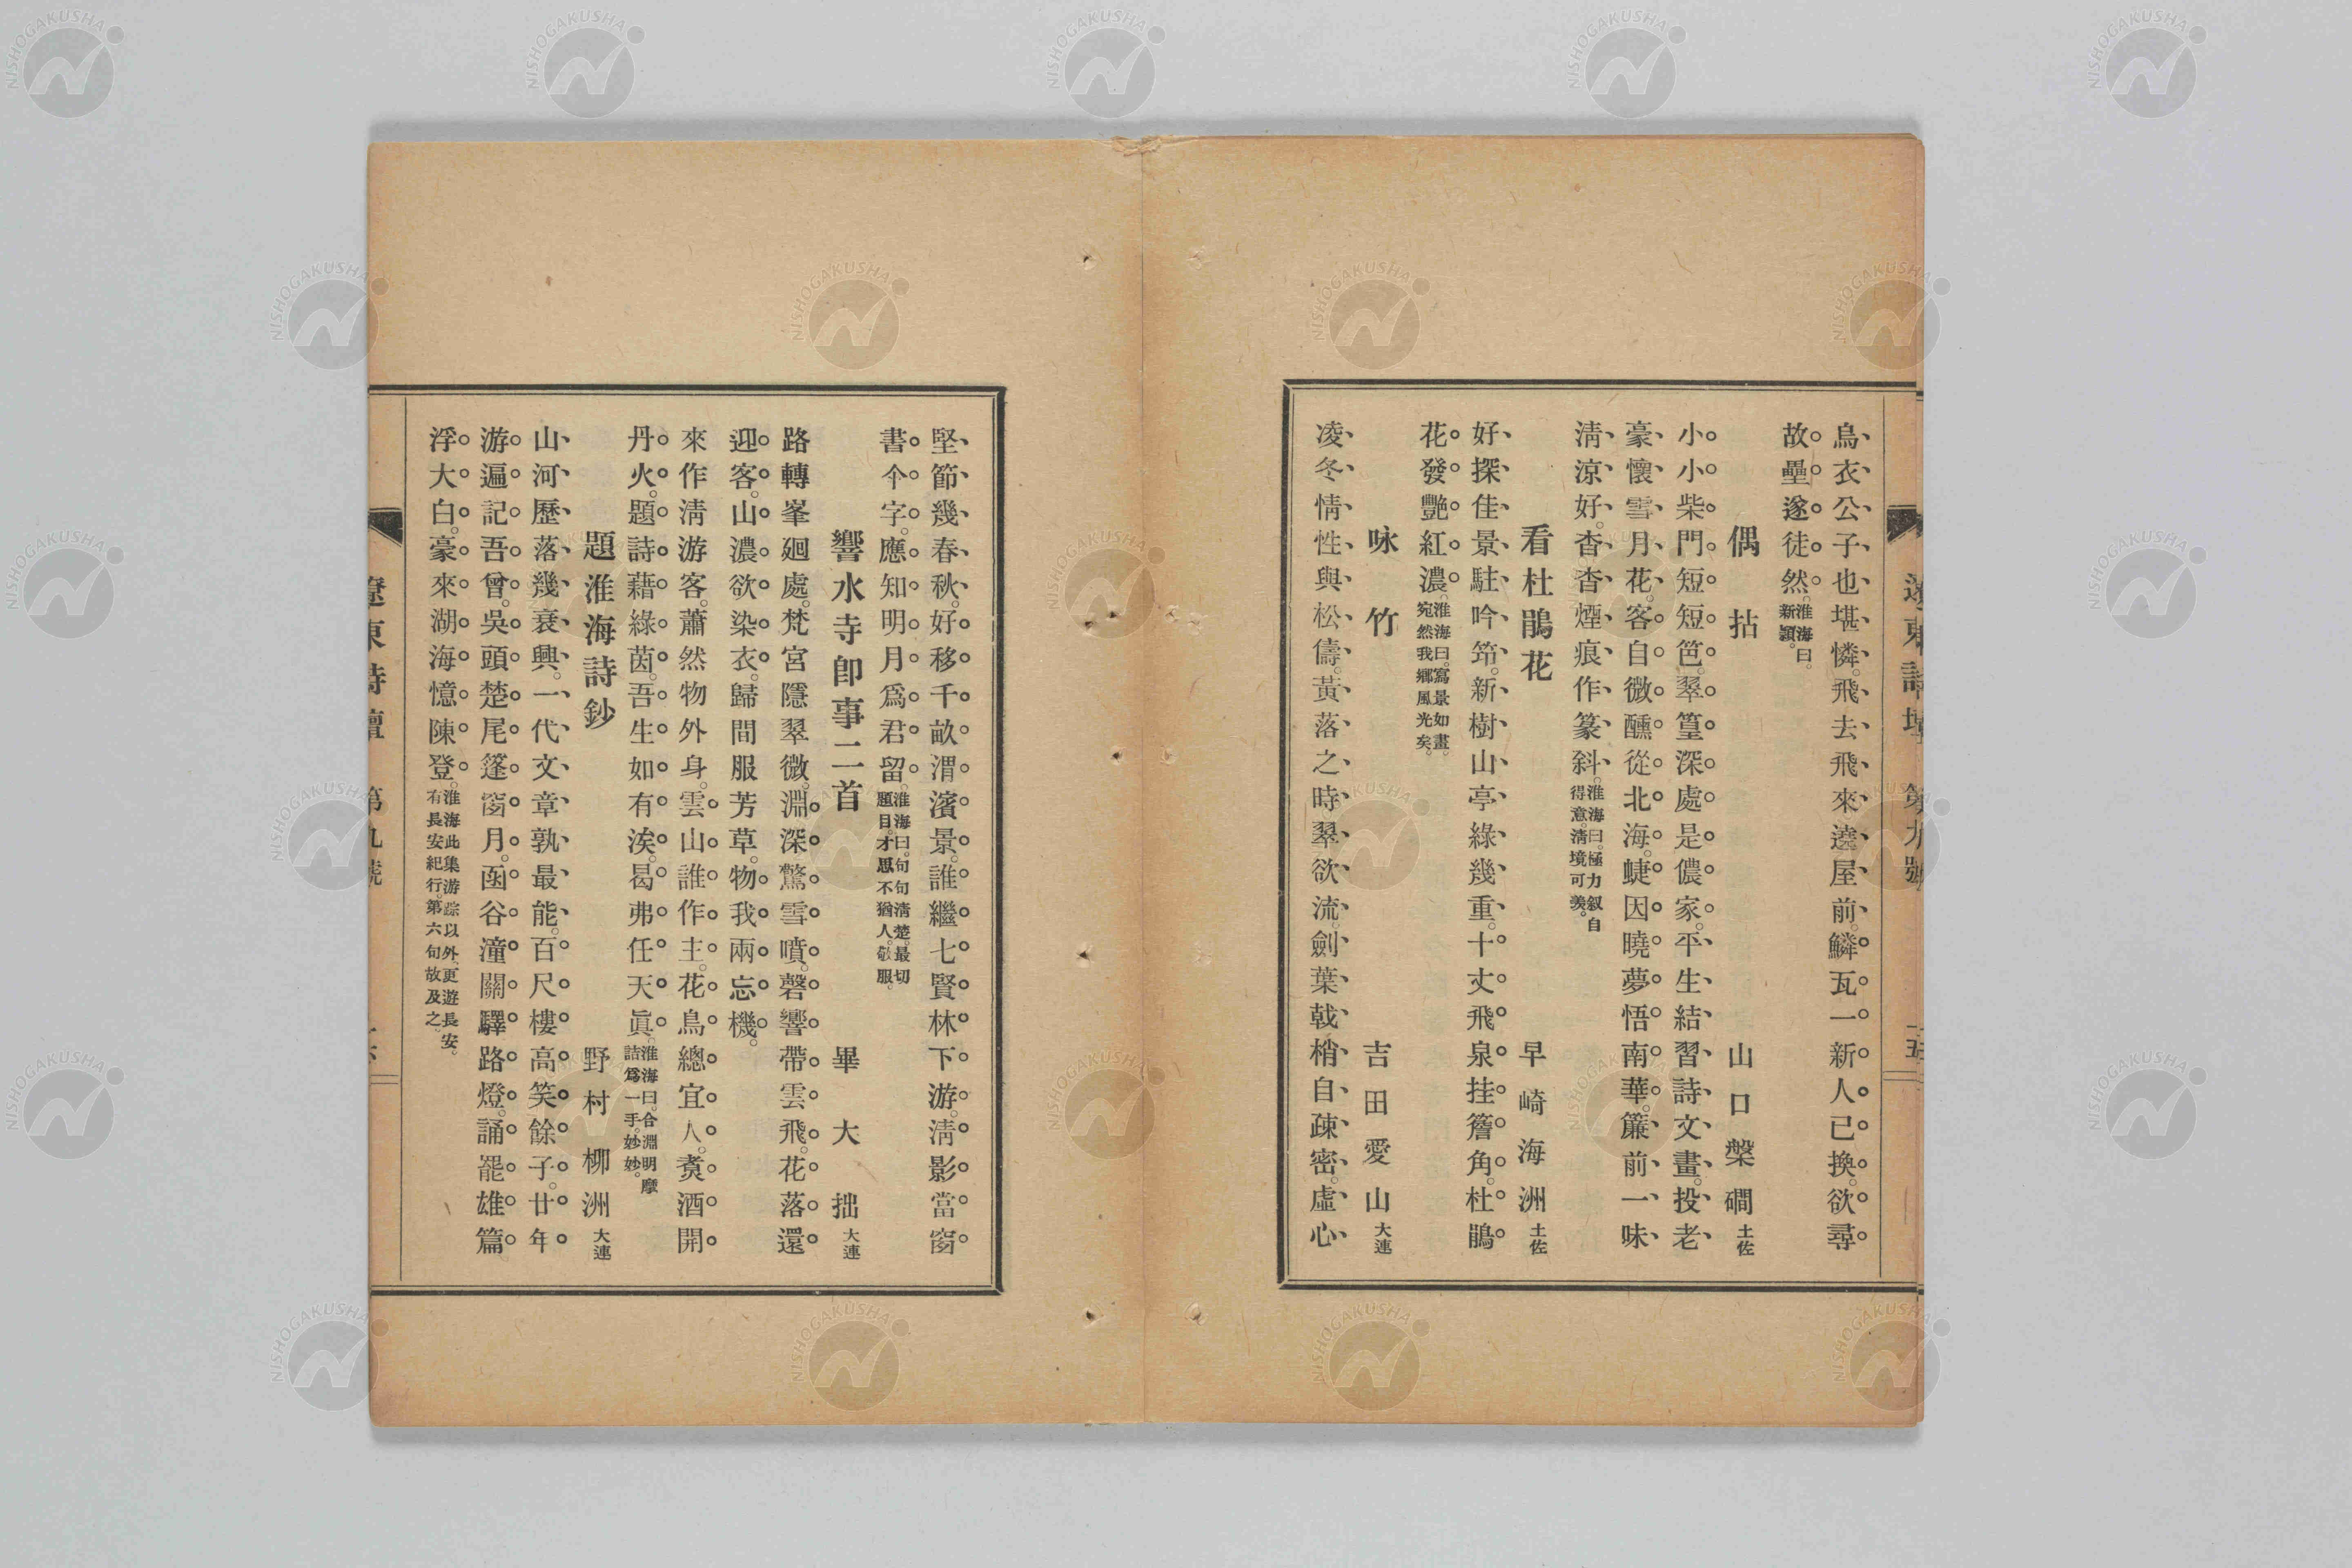 遼東詩壇 第九號 十五
烏衣公子也堪憐。飛去飛來遶屋前。鱗瓦一新人已換。欲尋
故壘遂徒然。淮海曰。新頴。
偶拈 山口槃磵 土佐
小小柴門短短笆。翠篁深處是儂家。平生結習詩文畫。投老
豪懷雪月花。客自微醺從北海。蜨因曉夢悟南華。簾前一味
淸涼好。杳杳煙痕作篆斜。淮海曰。極力叙自得意。淸境可羨。
看杜鵑花 早崎海洲 土佐
好探佳景駐吟筇。新樹山亭綠幾重。十丈飛泉挂簷角。杜鵑
花發艷紅濃。淮海曰。寫景如畫。宛然我鄉風光矣。
咏竹 吉田愛山 大連
凌冬情性與松儔。黃落之時翠欲流。劍葉戟梢自疎密。虛心
堅節幾春秋。好移千畝渭濱景。誰繼七賢林下游。淸影當窗
書个字。應知明月爲君留。淮海曰。句句淸楚。最切題目。才思不猶人。敬服。
響水寺卽事二首 畢大拙 大連
路轉峯廻處。梵宮隱翠微。淵深驚雪噴。磬響帶雲飛。花落還
迎客。山濃欲染衣。歸間服芳草。物我兩忘機。
來作淸游客。蕭然物外身。雲山誰作主。花鳥總宜人。煑酒開
丹火。題詩藉綠茵。吾生如有涘。曷弗任天眞。淮海曰。合淵明摩詰爲一手。妙妙。
題淮海詩鈔 野村柳洲 大連
山河歷落幾衰興。一代文章孰最能。百尺樓高笑餘子。廿年
游遍記吾曾。吳頭楚尾篷窗月。函谷潼關驛路燈。誦罷雄篇
浮大白。豪來湖海憶陳登。淮海此集游踪以外。更遊長安。有長安紀行。第六句故及之。
遼東詩壇 第九號